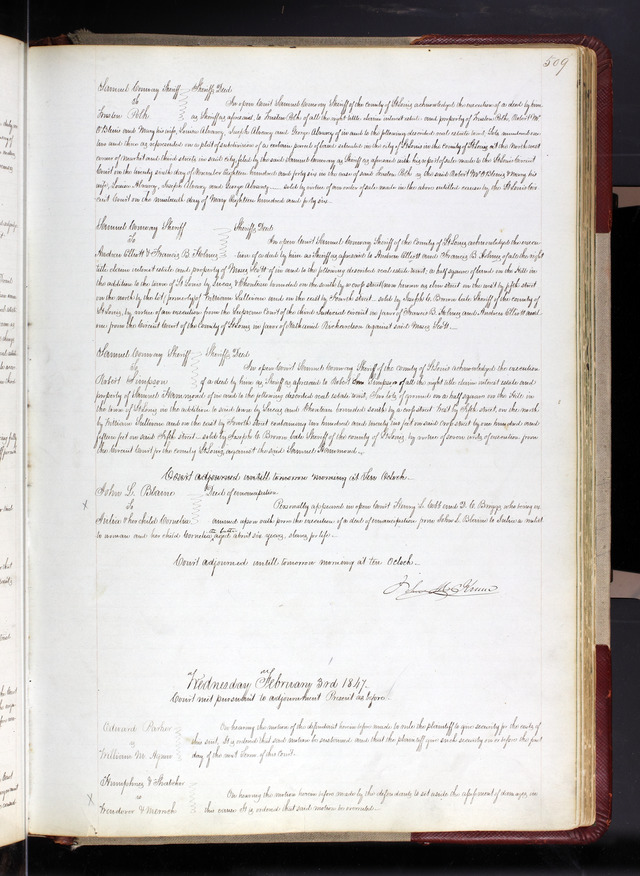 509
Samuel Conway Sheriff Sheriffs Deed
to In open Court Samuel Conway Sheriff of the county of St Louis acknowledged the execution of a deed by him
Trusten Polk as Sheriff as aforesaid, to Trusten Polk of all the right title claim interest estate and property of Trusten Polk, Robert M
O'Blenis and Mary his wife, Louisa Alvarez, Joseph Alvarez and George Alvarez of in and to the following described real estate
corner of Market and third streets in said city, filed by the said Samuel Conway as Sheriff as aforesaid with his report of sale made to the St Louis Circuit
Court on the twenty sixth day of May Eighteen hundred and forty six in the case of said Trusten Polk vs the said Robert M O'Blenis & Mary his
wife, Louisa Alvarez, Joseph Alvarez and George Alvarez sold by virtue of an order of sale made in the above entitled cause by the St Louis Cir
cuit Court on the nineteenth day of May Eighteen hundred and forty six
Samuel Conway Sheriff Sheriffs Deed
To In open Court Samuel Conway Sheriff of the County of St Louis acknowledged the execu
Andrew Elliott & Francis B. Holmes tion of a deed by him as Sheriff as aforesaid to Andrew Elliott and Francis B. Holmes of all the right
title claim interest estate and property of Scott of in and to the following described real estate to wit, a half square of land in the
the addition to the town of St Louis by Lucas & Chouteau bounded on the south by a cross street on the west by fifth street
on the north by the lot formerly of William Sullivan and on the east by Fourth street. sold by Joseph C. Brown late Sheriff of the county of
St Louis, by virtue of an execution from the Supreme Court of the third Judicial circuit in favor of Francis B. Holmes and Andrew Elliott and
one from the Circuit Court of the County of St Louis in favor of Nathaniel Richardson against said Scott
Samuel Conway Sheriff Sheriffs Deed
to In open Court Samuel Conway Sheriff of the county of St Louis acknowledged the execution
Robert Simpson of a deed by him as Sheriff as aforesaid to Robert Simpson of all the right title claim interest estate and
property of Samuel Hammond of in and to the following described real estate to wit, Two lots of ground in a half square on the Hill in
the town of St Louis in the addition to said town by Lucas and Chouteau bounded south by a cross street West by Fifth street, on the north
by William Sullivan and on the east by Fourth street containing two hundred and twenty feet on said cross street by one hundred and
fifteen feet on said Fifth street sold by Joseph C. Brown late Sheriff of the county of St Louis, by virtue of seven writs of execution from
the Circuit Court for the county St Louis, against the said Samuel Hammond
Court adjourned untill tomorrow morning at ten Oclock.
John L. Blaine Deed of emancipation
x to Personally appeared in open Court Henry L. Cobb and D. C. Briggs who being
& her child Cornelia upon oath prove the execution of a deed of emancipation, from John L. Blaine to a mulat
to woman and her child Cornelia the latter aged about six years, slaves for life
Court adjourned untill tomorrow morning at ten Oclock
John M Krum
Wednesday February 3rd 1847
Court met pursuant to adjournment Present as before
Edmund Parker On hearing the motion of the defendant herein before made to rule the plaintiff to give security for the costs of
vs this suit, It is ordered that said motion be sustained and that the plaintiff give such security on or before the first
William M. day of the next Term of this Court.
Humphrey & Thatcher
vs On hearing the motion herein before made by the defendants to set aside the assessment of damages, in
x & this cause It is ordered that said motion be overruled